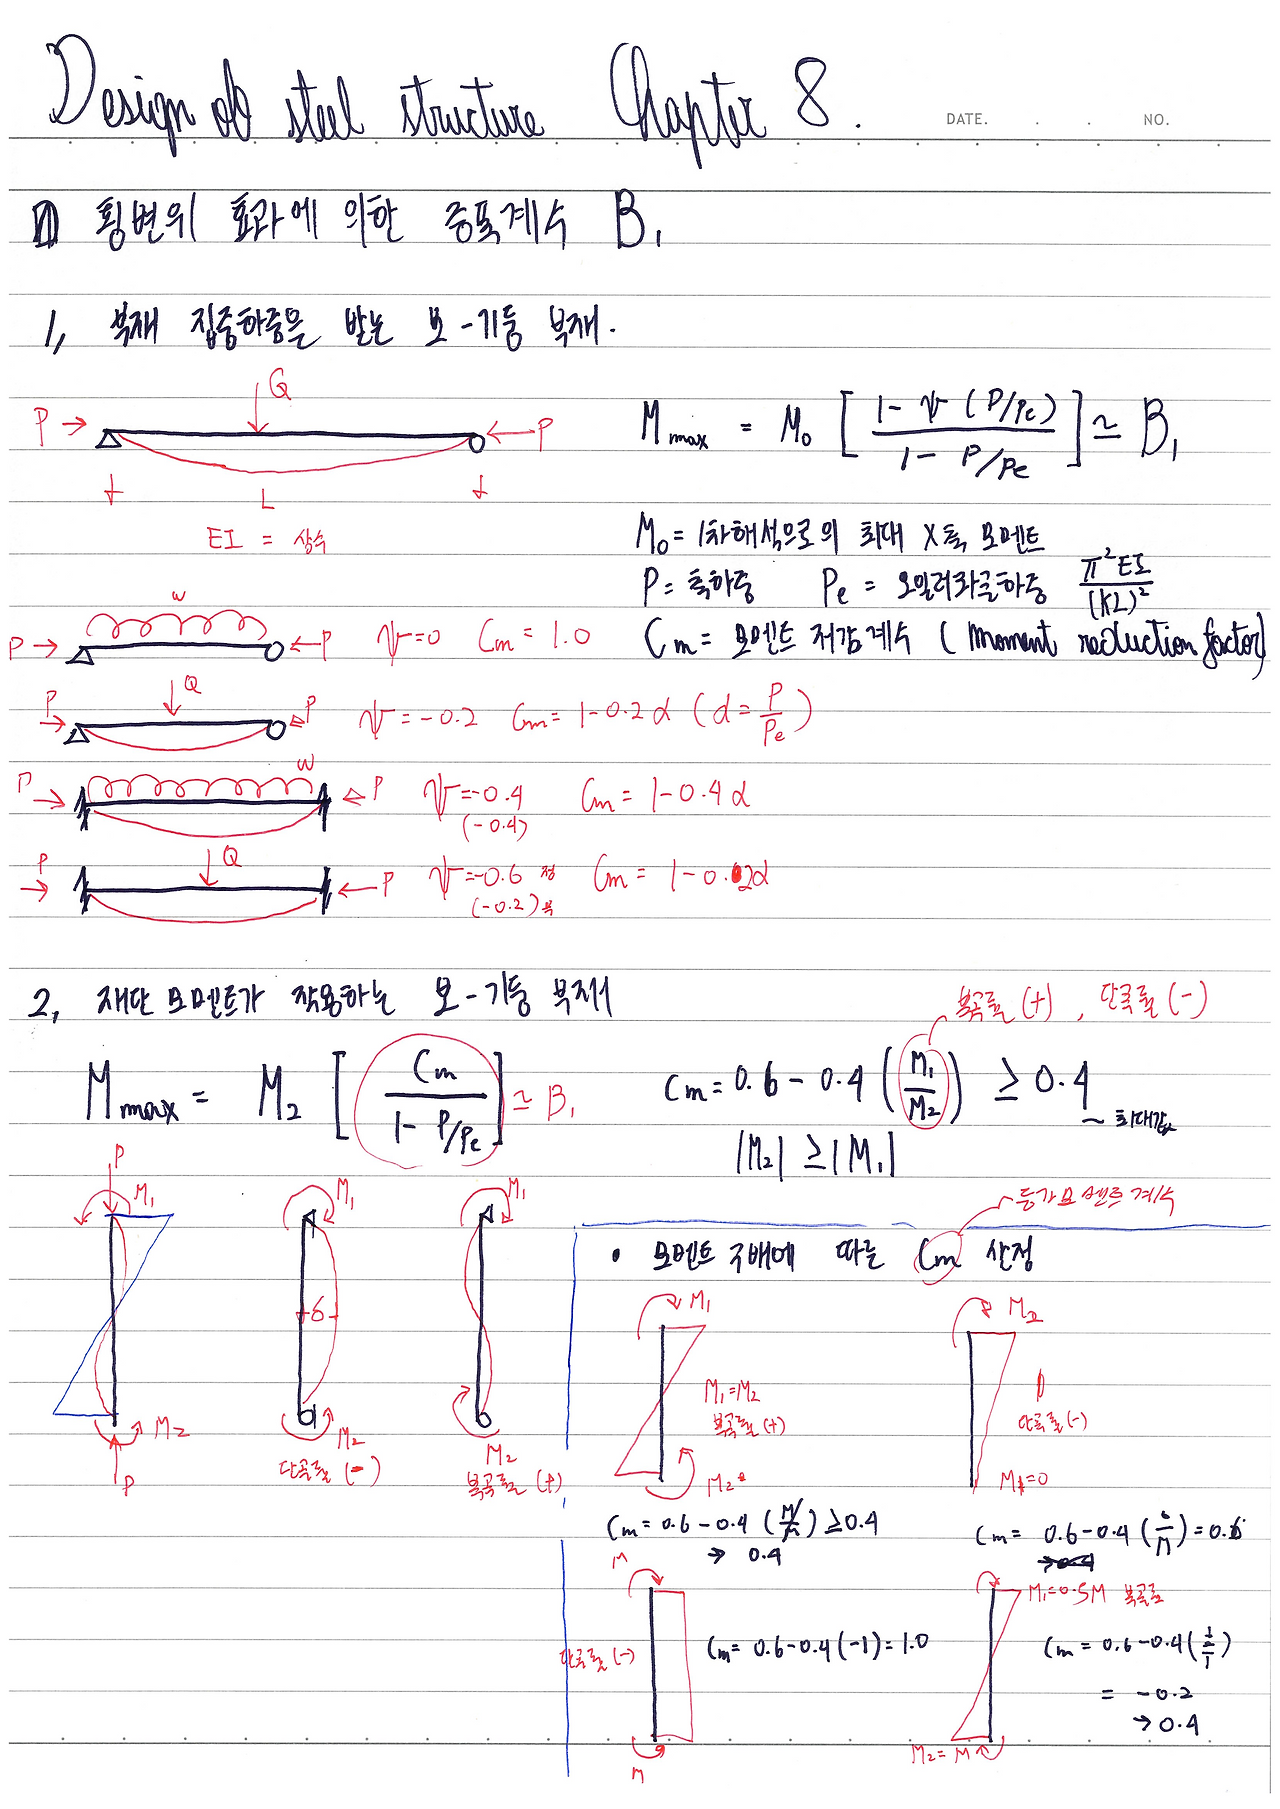 Design of steel structure Chapter 8.
DATE. . . NO.
1 횡변위 효과에 의한 증폭계수 B₁
1, 부재 집중하중을 받는 보-기둥 부재.
P → Q ← P
L
EI = 상수
Mmax = M₀ [ (1 - ψ (P/Pe)) / (1 - P/Pe) ] ≃ B₁
M₀ = 1차해석으로의 최대 X축 모멘트
P = 축하중 Pe = 오일러좌굴하중 π²EI/(KL)²
Cm = 모멘트 저감계수 (moment reduction factor)
P → w ← P ψ=0 Cm = 1.0
P → Q ← P ψ=-0.2 Cm = 1-0.2α (α = P/Pe)
P → w ← P ψ=-0.4 Cm = 1-0.4α
(-0.4)
P → Q ← P ψ=-0.6 정 Cm = 1-0.2α
(-0.2) 부
2, 재단 모멘트가 작용하는 보-기둥 부재
복곡률 (+), 단곡률 (-)
Mmax = M₂ [ Cm / (1 - P/Pe) ] ≃ B₁
Cm = 0.6 - 0.4 (M₁/M₂) ≥ 0.4
~ 최대값
|M₂| ≥ |M₁|
P M₁ M₂ P
M₁ δ M₂
단곡률 (-)
M₁ M₂
복곡률 (+)
등가모멘트계수
• 모멘트 구배에 따른 Cm 산정
M₁
M₁=M₂
복곡률 (+)
M₂
Cm = 0.6 - 0.4 (M/M) ≥ 0.4
→ 0.4
M₂
단곡률 (-)
M₁=0
Cm = 0.6 - 0.4 (0/M) = 0.6
→ 0.4
M
단곡률 (-)
M
Cm = 0.6 - 0.4 (-1) = 1.0
M₁=0.5M 복곡률
M₂ = M
Cm = 0.6 - 0.4 (½/1)
= -0.2
→ 0.4